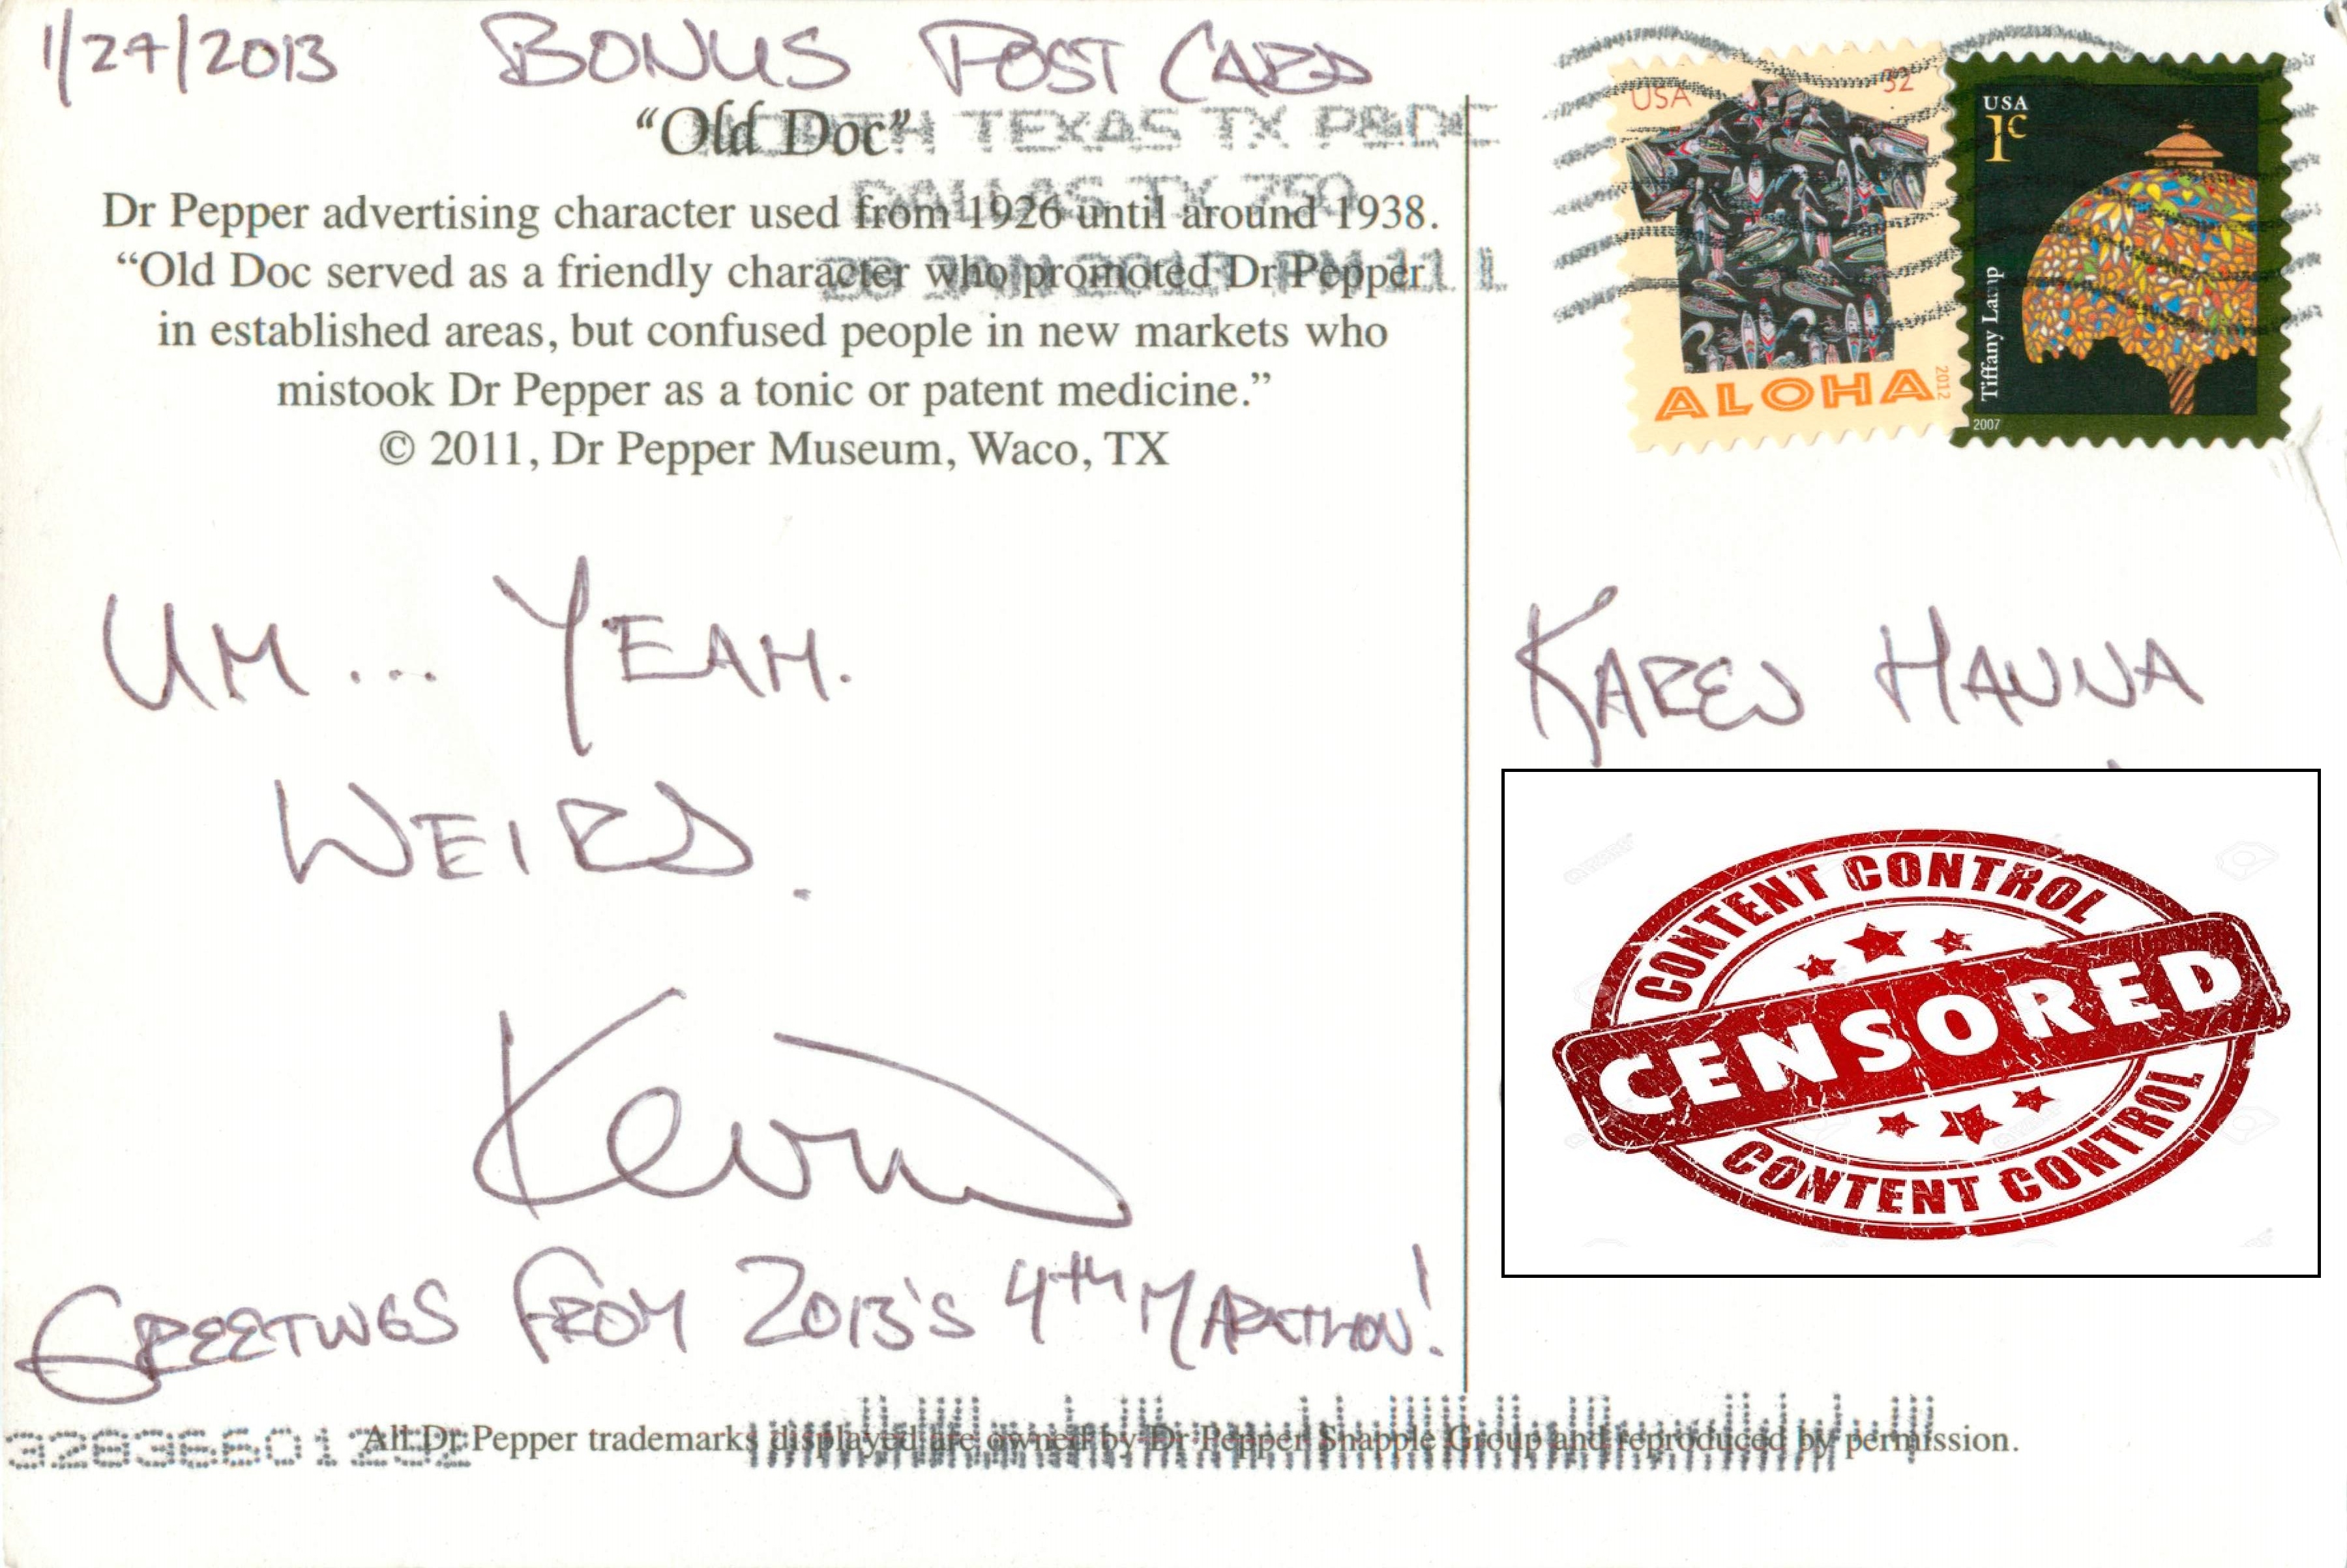 1/27/2013 BONUS POST CARD
"Old Doc"
NORTH TEXAS TX P&DC
DALLAS TX 750
28 JAN 2013 PM 11 L
Dr Pepper advertising character used from 1926 until around 1938.
"Old Doc served as a friendly character who promoted Dr Pepper
in established areas, but confused people in new markets who
mistook Dr Pepper as a tonic or patent medicine."
© 2011, Dr Pepper Museum, Waco, TX
UM... YEAH.
WEIRD.
Kevin
GREETINGS FROM 2013'S 4TH MARATHON!
USA 32
ALOHA
2012
USA
1c
Tiffany Lamp
2007
KAREN HANNA
CONTENT CONTROL
CENSORED
CONTENT CONTROL
All Dr Pepper trademarks displayed are owned by Dr Pepper Snapple Group and reproduced by permission.